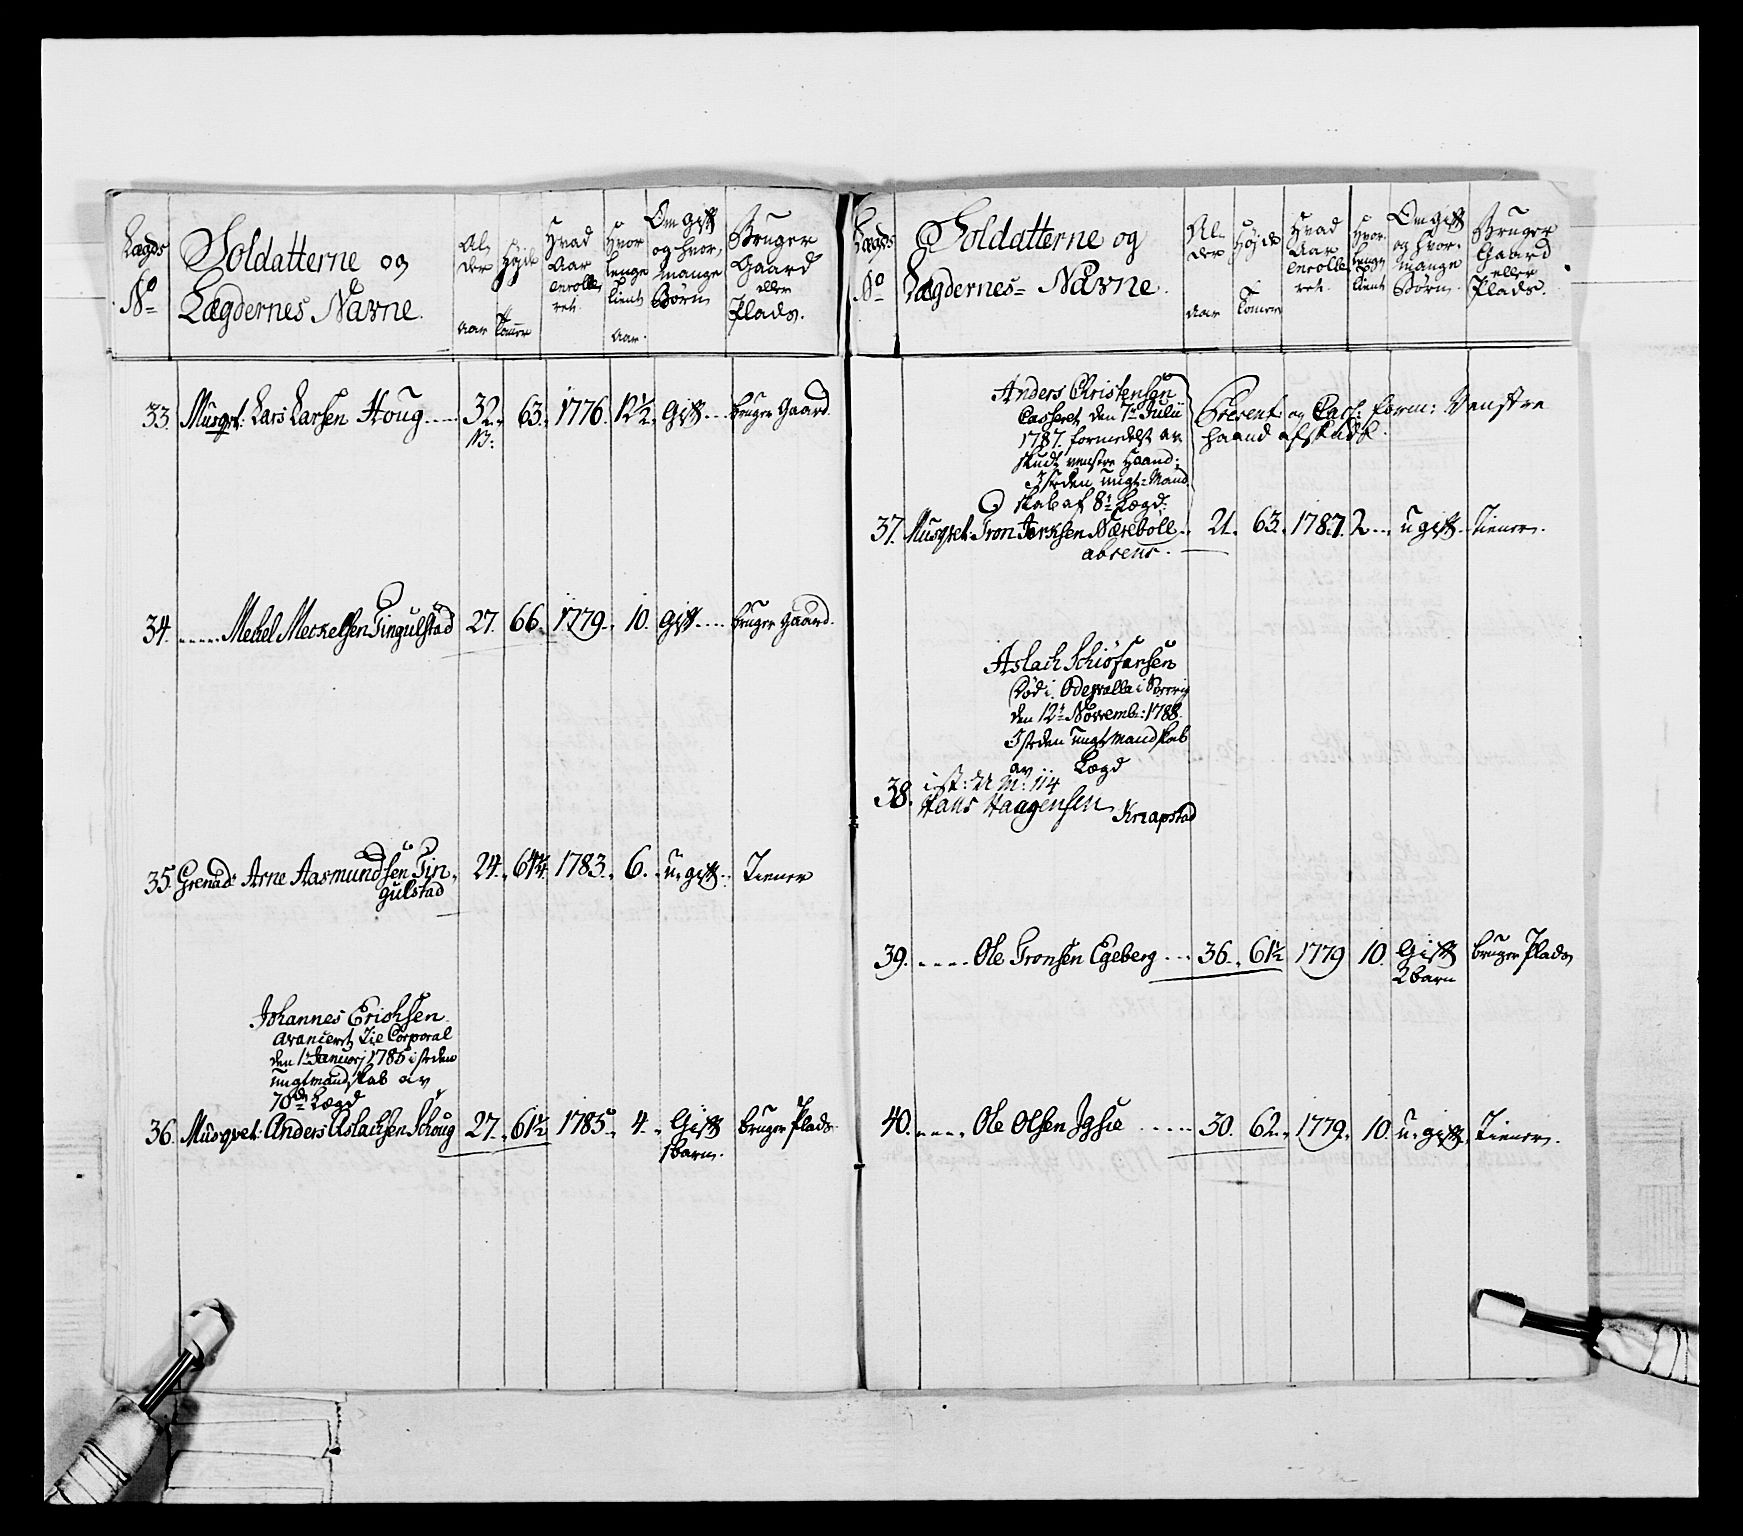 Lægds No
Soldatterne og
Lægdernes Navne.
Al, der Aar
Højde Tommer
Hvad Aar enrolle, ret
Hvor lenge tient Aar.
Om gift og hvor, mange Børn
Bruger Gaard eller Plads.
33. Musqvt: Lars Larsen Houg .... 32. 63. 1776. 12½. Gift .... bruger Gaard.
34. ..... Mekel Meckelsen Tingulstad 27. 66. 1779. 10. Gift .... bruger Gaard.
35. Grenad: Arne Aasmundsen Tin,
gulstad 24. 64¼. 1783. 6. u, gift .. Tiener
Johannes Erichsen
avanceret til Corporal
den 1t Januarj 1785 isteden
ungtmandskab av
70de Lægd
36. Musqvet: Anders Aslachsen Schoug 27. 61½ 1785. 4. Gift bruger Plads.
1 barn.
Lægds No
Soldatterne og
Lægdernes Navne.
Al, der Aar
Højde Tommer
Hvad Aar enrolle, ret.
Hvor lenge tient
Om gift og hvor, mange Børn.
Bruger Gaard eller Plads.
Anders Christensen
Casseret den 7de Julii
1787. formedelst av
skudt venstre Haand;
Isteden ungt-Mand
skab af 8t Lægd:
Present: og Cass: form: Venstre
haand afskudt.
37. Musqvet: Tron Jacksen Nærebøll .. 21. 63. 1787. 2... ugift. Tiener.
absent.
Aslach Schiøfansen
død i Odevalla i Sverrig
den 12t Novemb: 1788.
Isteden ungtmandskab
av Lægd
38. i st: U M: 114
Hans Haagensen Knapstad
39. .... Ole Tronsen Egeberg ... 36. 61½ 1779 10. Gift bruger Plads
2 barn
40. .... Ole Olsen Igsie ..... 30. 62. 1779. 10. u, gift. Tiener.